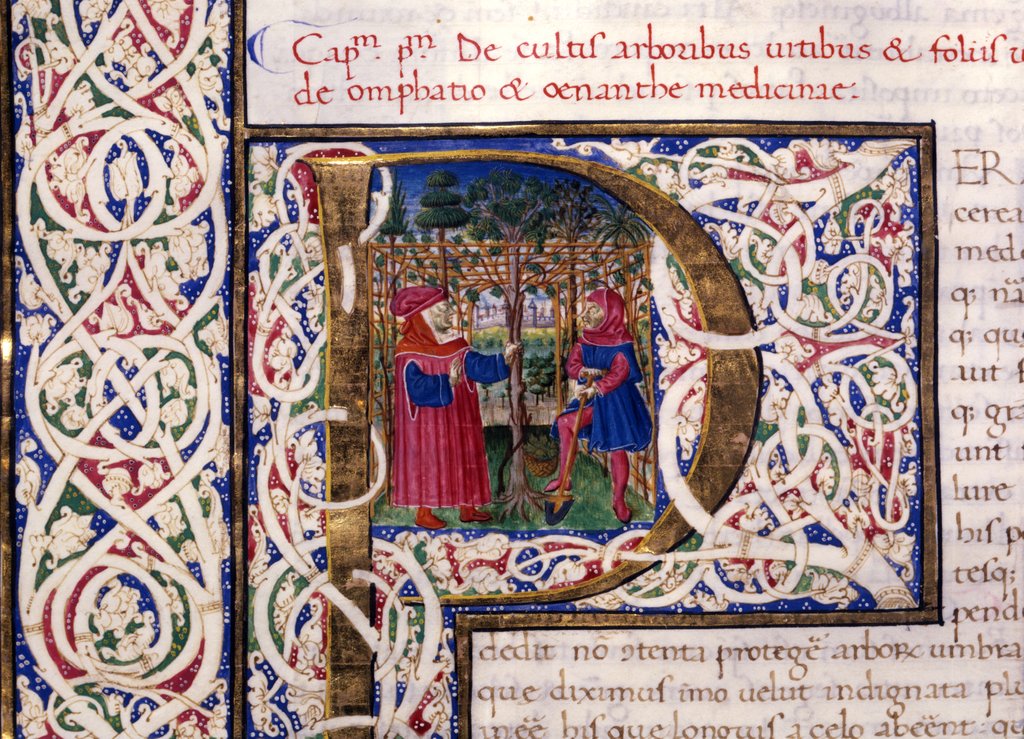 Capᵐ. pᵐ. De cultis arboribus uitibus & foliis
de omphatio & oenanthe medicinae:
P
ER
cerea
med
q; nā
q; qu
aut
q; gra
unt
lure
his p
tesq;
pend
dedit nō ɔtenta protegē arborꝝ umbra
que diximus imo uelut indignata plu
his que longius a celo abeēnt